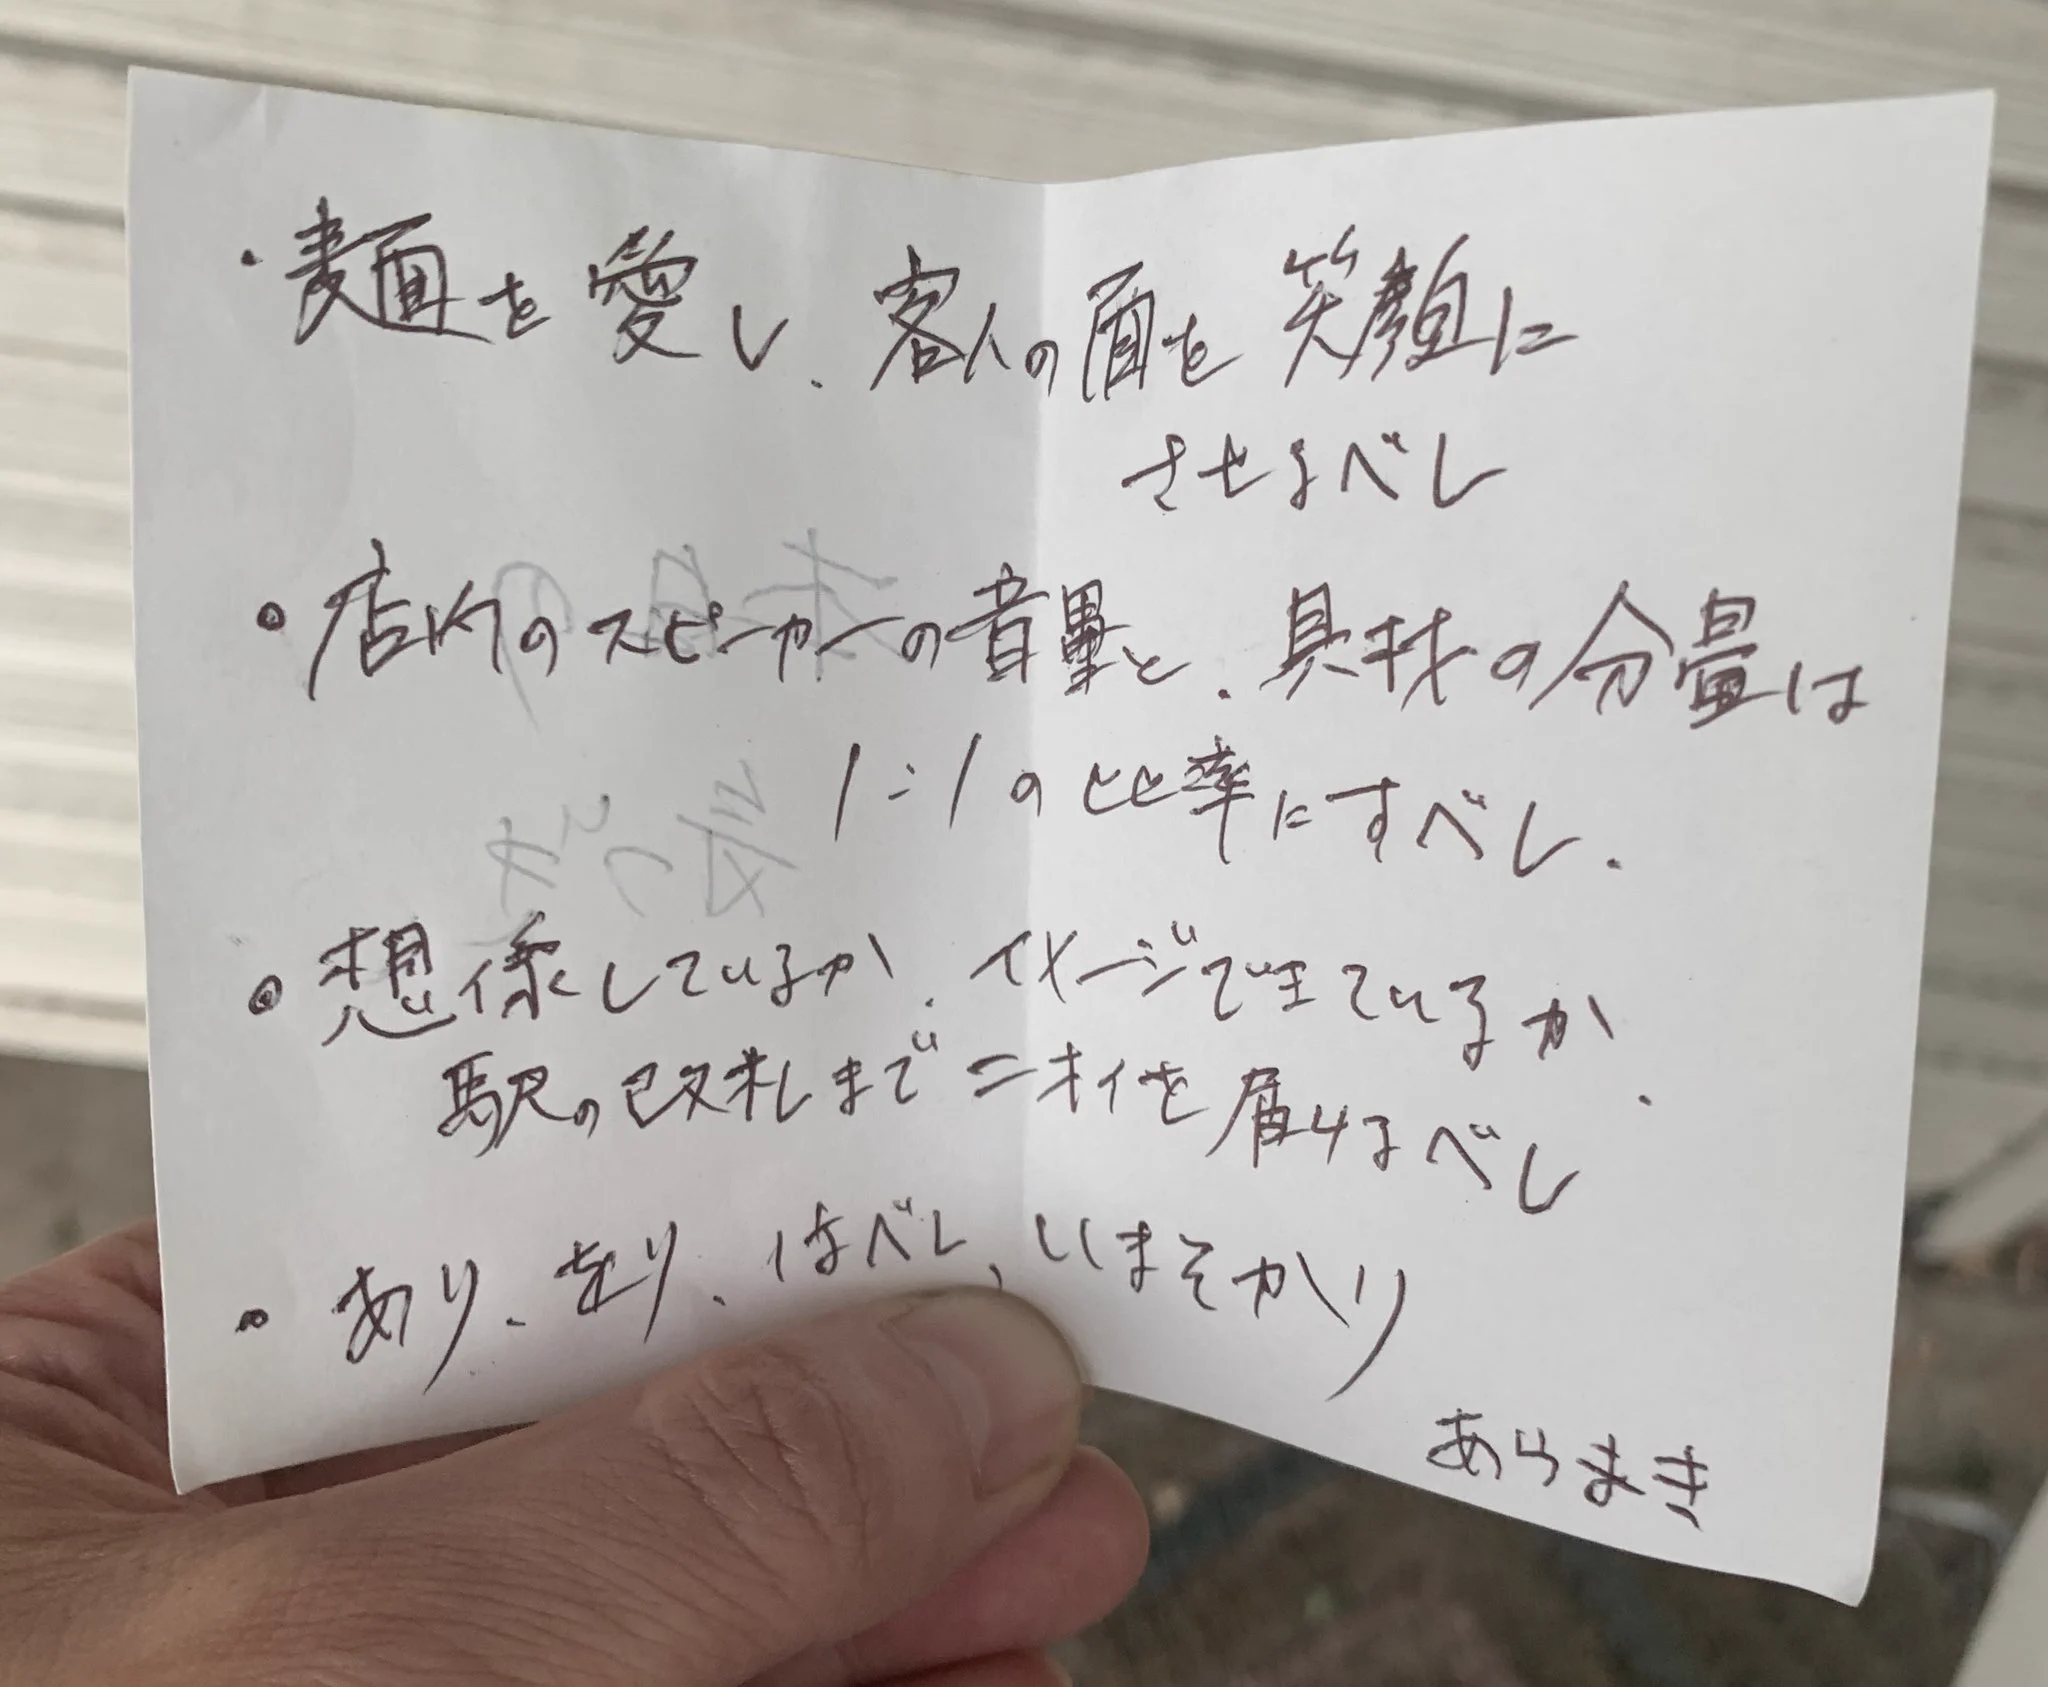 ・麺を愛し、客人の面を笑顔に
させるべし
・店内のスピーカーの音量と、具材の分量は
1:1の比率にすべし.
・想像しているか、イメージできているか、
駅の改札までニオイを届けるべし
・あり、をり、はべし、いまそかり
あらまき